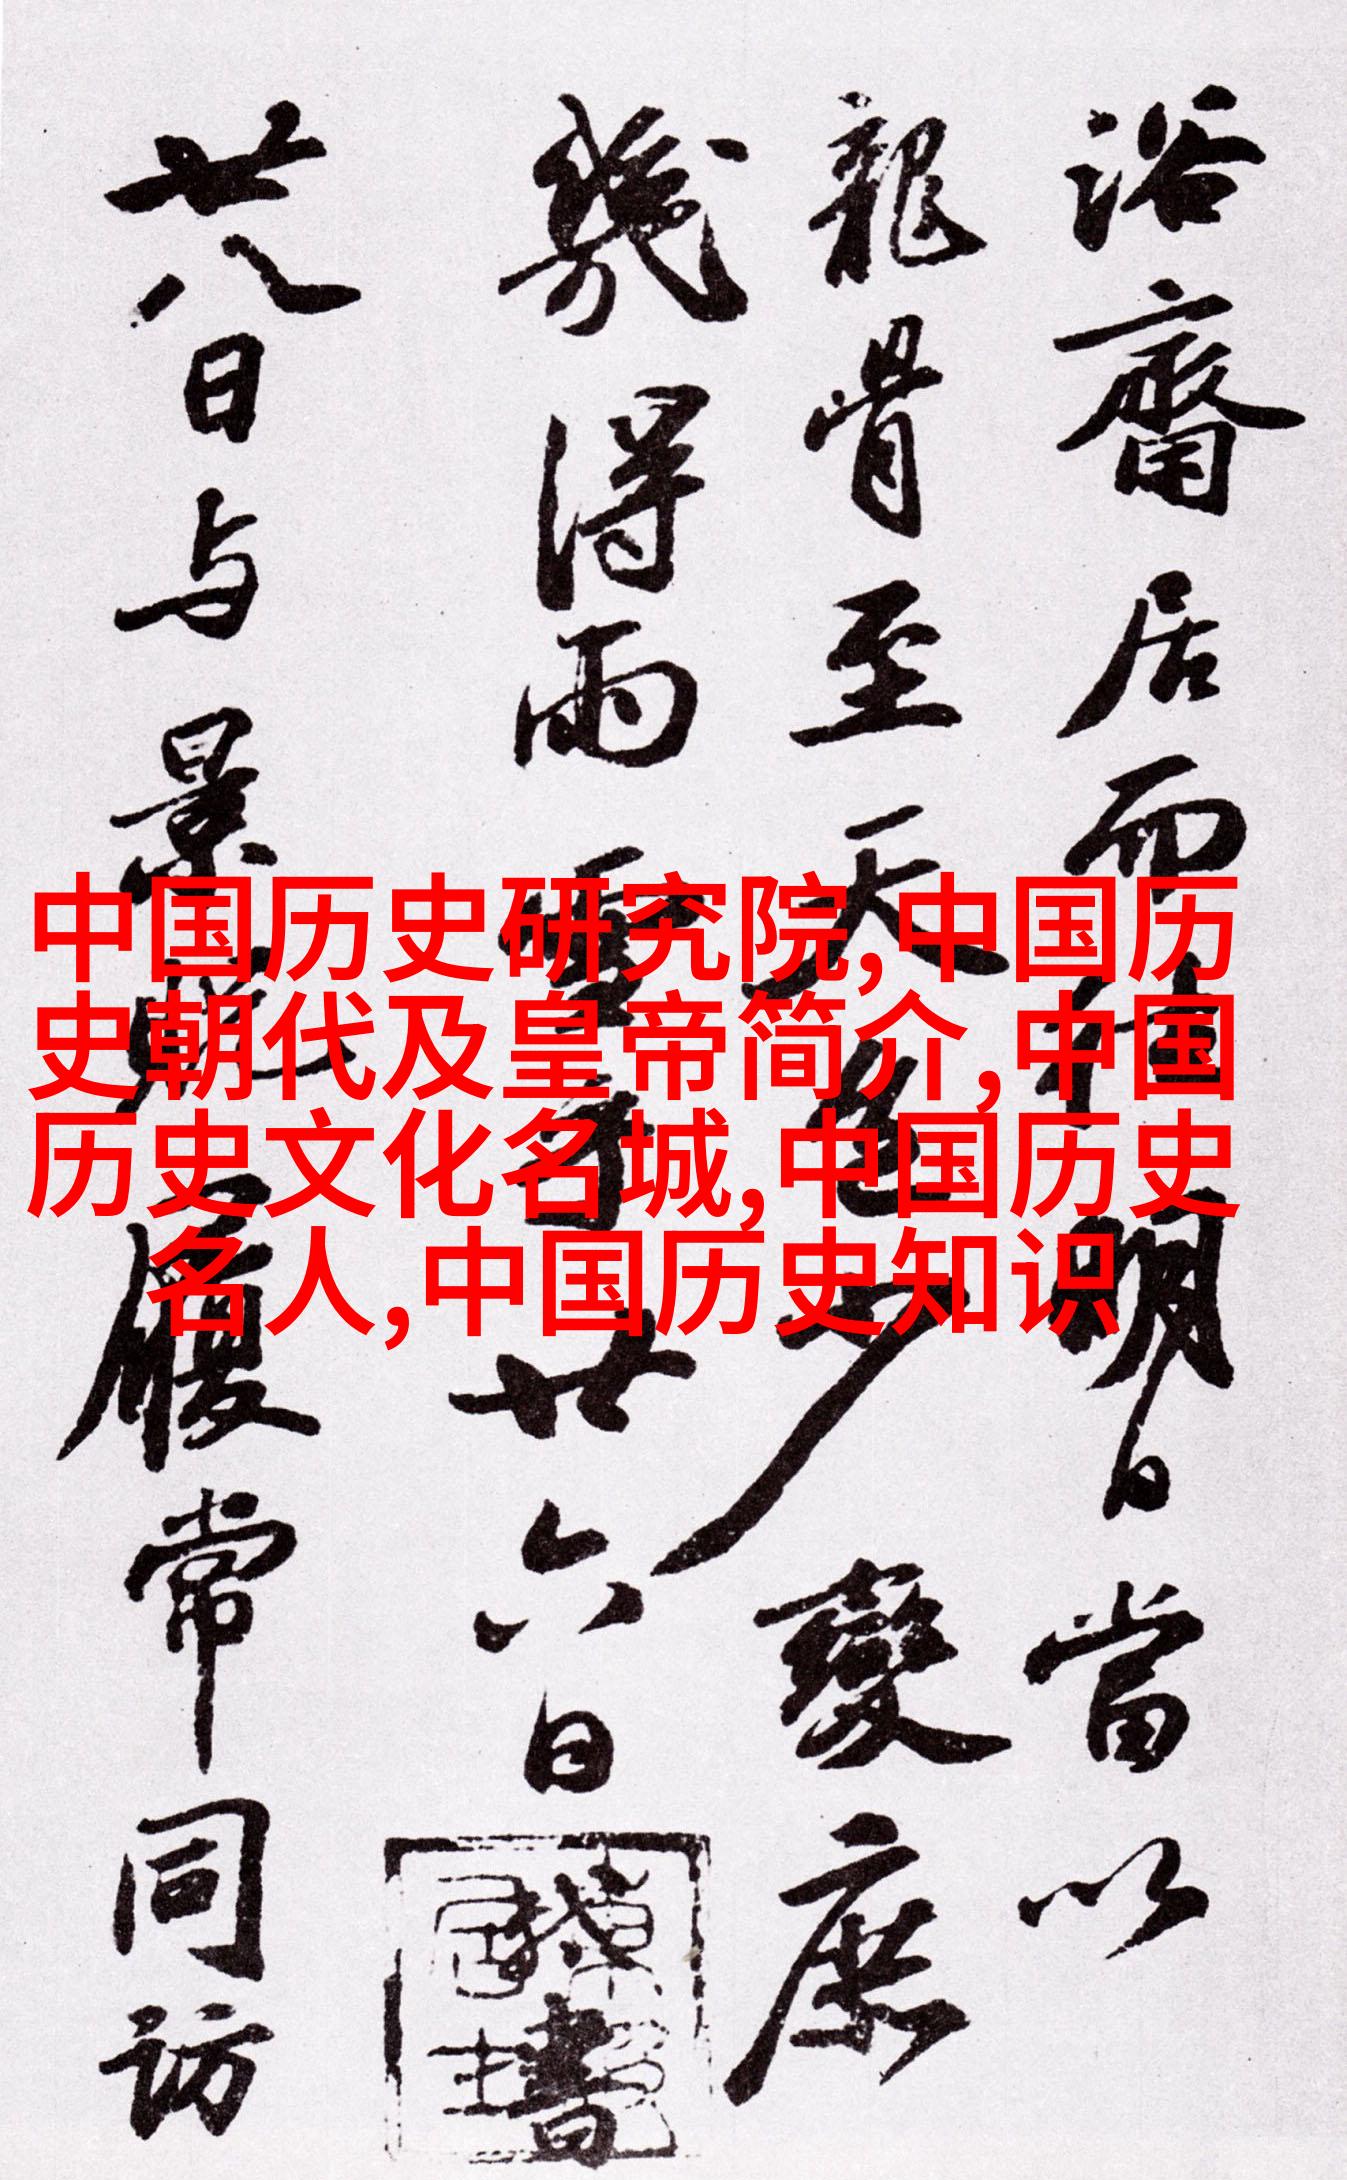 浴齋居而往明日當以
龍骨至天色少變庶
幾得雨雪乎廿六日書
廿八日与景貺履常同訪
中国历史研究院,中国历
史朝代及皇帝简介,中国
历史文化名城,中国历史
名人,中国历史知识